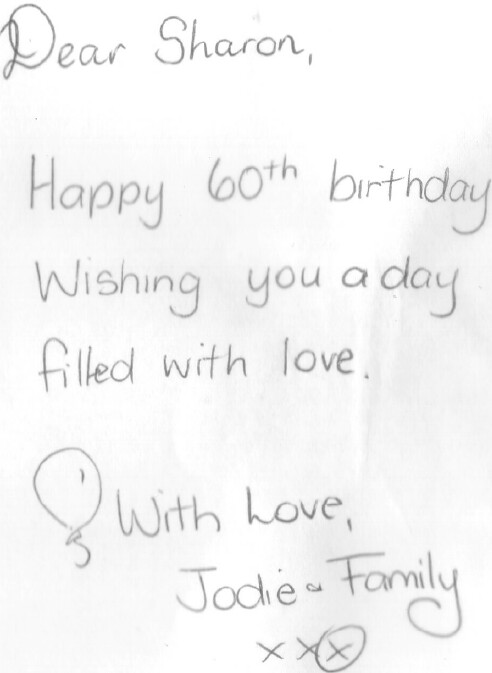 Dear Sharon,
Happy 60th birthday
Wishing you a day
filled with love.
With Love,
Jodie & Family
xxx